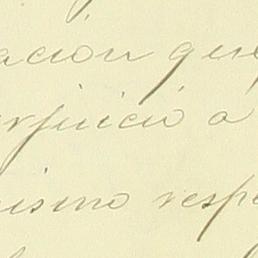 ación que
erjuicio a
ismo respe